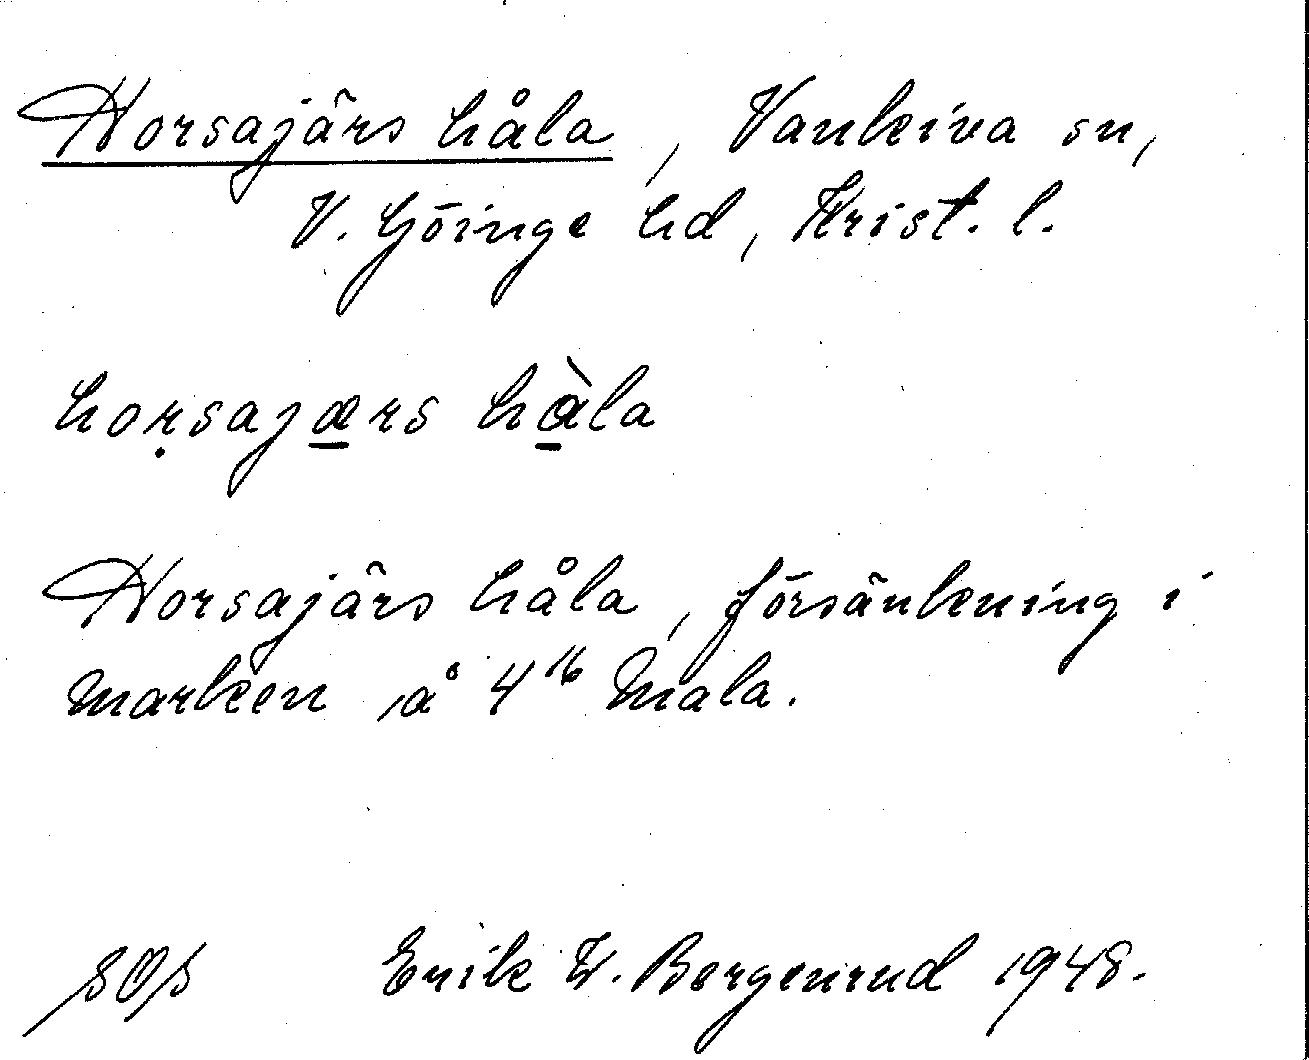 Horsajärs håla, Vankiva sn,
V. Göinge hd, Krist. l.
horsajærs hàla
Horsajärs håla, försänkning i
marken å 4¹⁶ Mala.
SOS Erik W. Bergenrud 1948.